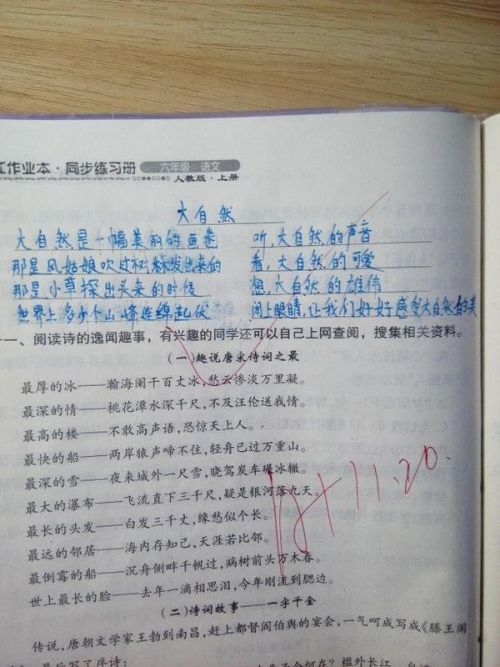 江作业本·同步练习册 六年级 语文
人教版·上册
大自然
大自然是一幅美丽的画卷 听,大自然的声音
那是风姑娘吹过树梢发出来的 看,大自然的可爱
那是小草探出头来的时候 想,大自然的雄伟
世界上多少个山峰连绵起伏 闭上眼睛,让我们好好感受大自然的美
一、阅读诗的逸闻趣事,有兴趣的同学还可以自己上网查阅,搜集相关资料。
(一)趣说唐宋诗词之最
最厚的冰——瀚海阑干百丈冰,愁云惨淡万里凝。
最深的情——桃花潭水深千尺,不及汪伦送我情。
最高的楼——不敢高声语,恐惊天上人。
最快的船——两岸猿声啼不住,轻舟已过万重山。
最深的雪——夜来城外一尺雪,晓驾炭车碾冰辙。
最大的瀑布——飞流直下三千尺,疑是银河落九天。
最长的头发——白发三千丈,缘愁似个长。
最远的邻居——海内存知己,天涯若比邻。
最倒霉的船——沉舟侧畔千帆过,病树前头万木春。
世上最长的脸——去年一滴相思泪,今年刚流到腮边。
11.20.
(二)诗词故事——一字千金
传说,唐朝文学家王勃到南昌,赶上都督阎伯舆的宴会,一气呵成写成《滕王阁
最后写了序诗: